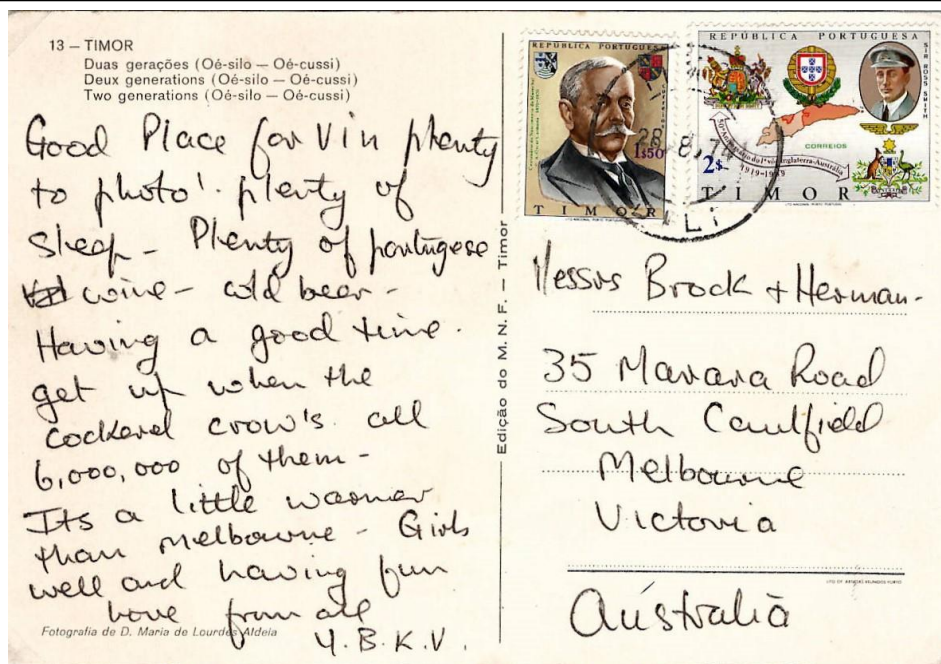 13 — TIMOR
Duas gerações (Oé-silo — Oé-cussi)
Deux generations (Oé-silo — Oé-cussi)
Two generations (Oé-silo — Oé-cussi)
Good Place for Vin plenty
to photo'. plenty of
sleep - Plenty of portugese
wine - cold beer -
Having a good time.
get up when the
cockerel crow's. all
6,000,000 of them -
Its a little warmer
than Melbourne - Girls
well and having fun
Love from all
Y.B.K.V.
Fotografia de D. Maria de Lourdes Aldeia
Edição do M. N. F. — Timor
REPÚBLICA PORTUGUESA
1$50
TIMOR
REPÚBLICA PORTUGUESA
SIR ROSS SMITH
CORREIOS
50º Aniversário do 1º vôo Inglaterra-Australia
1919-1969
2$
TIMOR
28 8
LI
Messrs Brock + Herman.
35 Marara Road
South Caulfield
Melbourne
Victoria
Australia